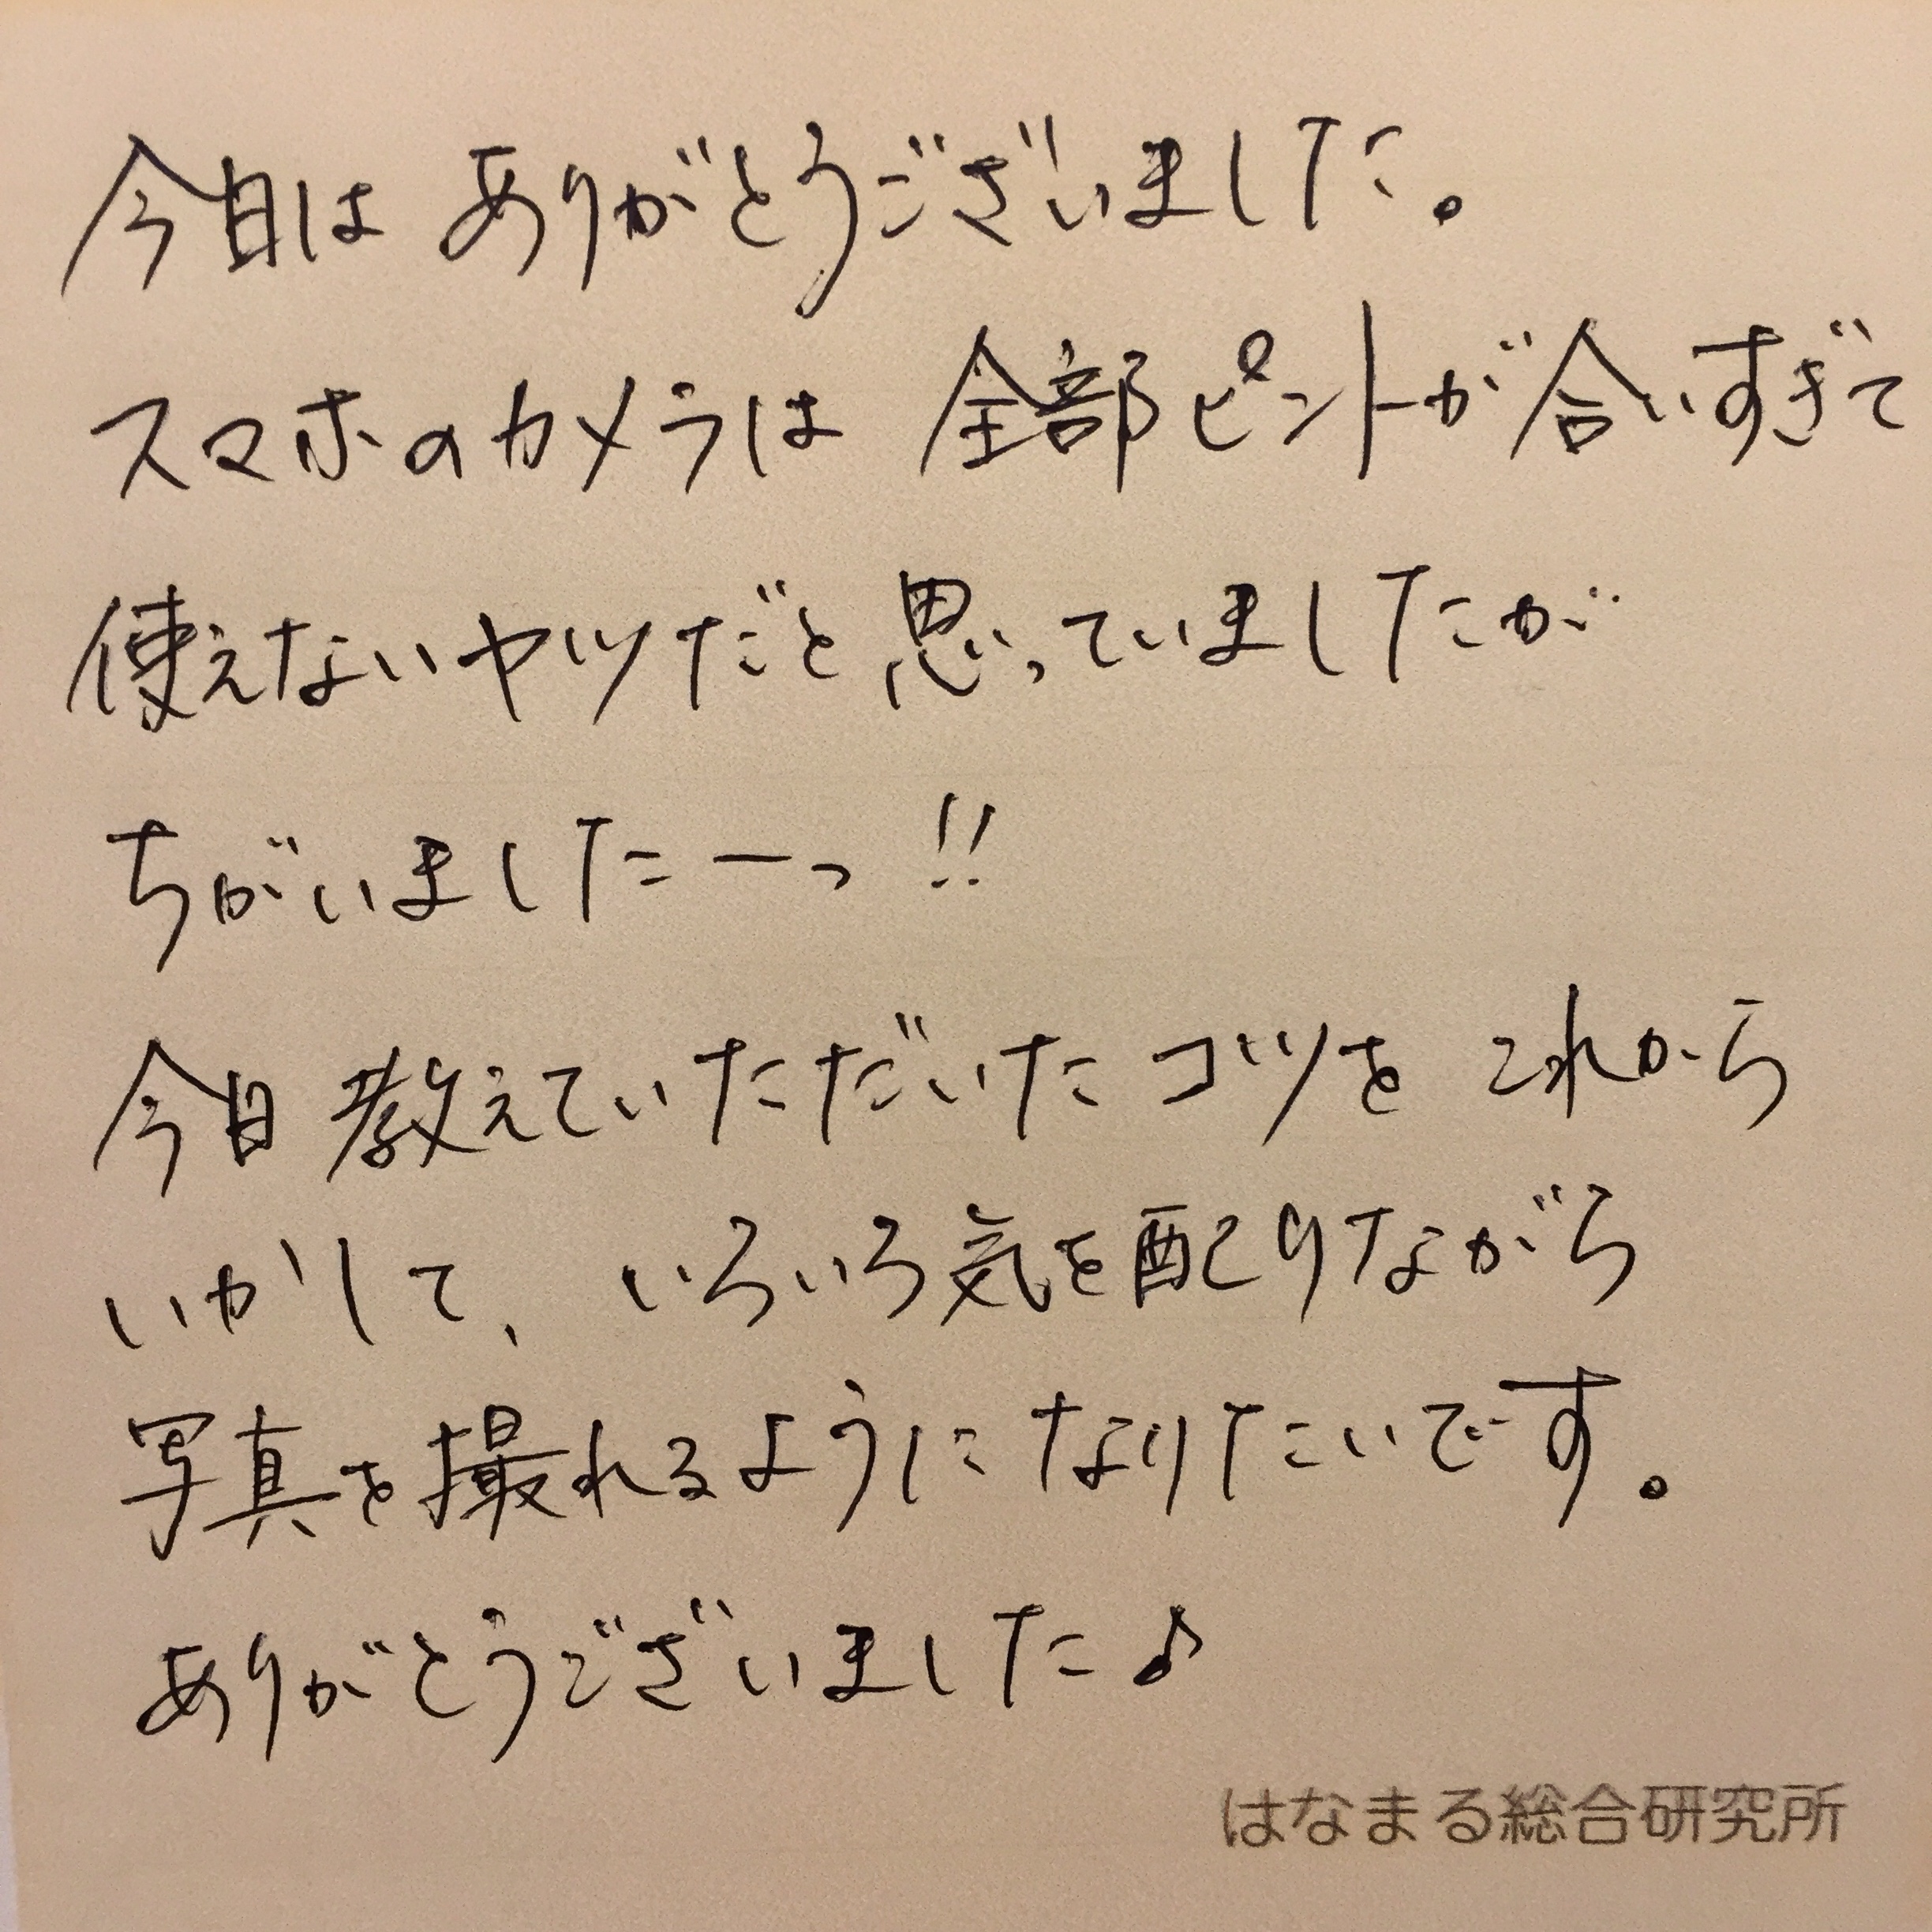 今日は ありがとうございました。
スマホのカメラは 全部ピントが合いすぎて
使えないヤツだと思っていましたが
ちがいましたーっ!!
今日 教えていただいたコツを これから
いかして、いろいろ気を配りながら
写真を撮れるようになりたいです。
ありがとうございました♪
はなまる総合研究所